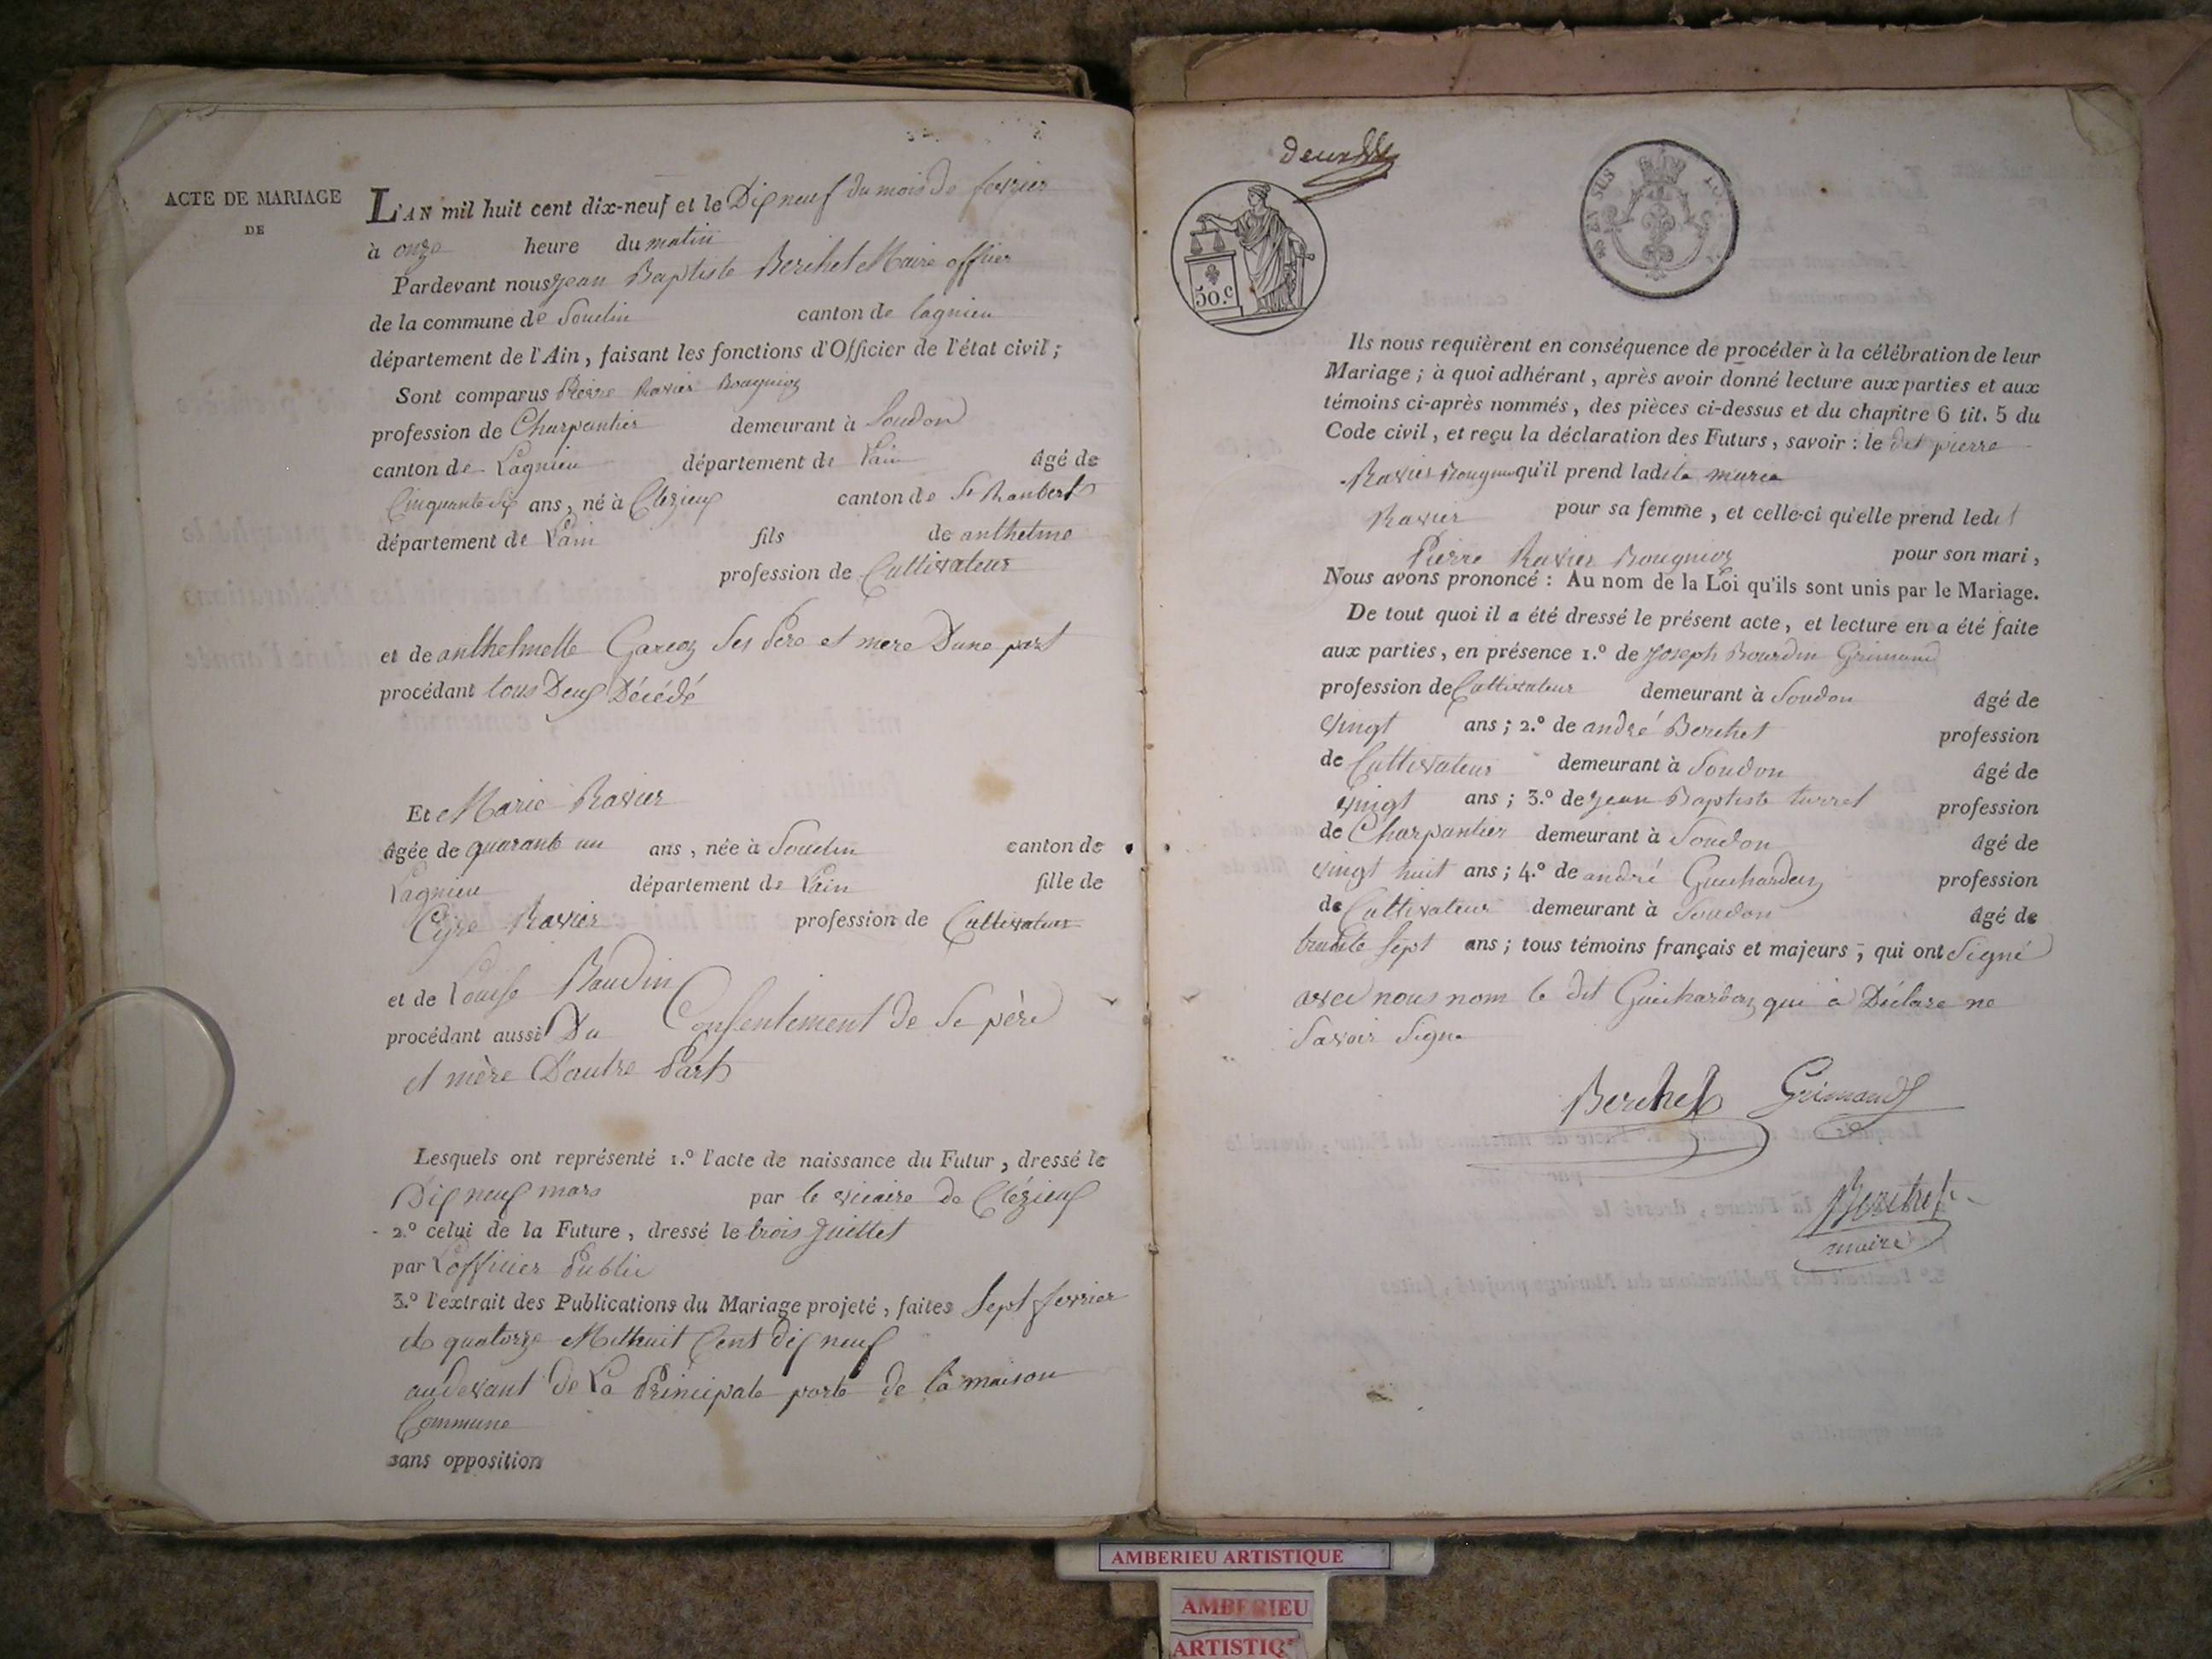 ACTE DE MARIAGE
DE
L'AN mil huit cent dix-neuf et le Dix neuf du mois de fevrier
à onze heure du matin
Pardevant nous jean Baptiste Berthet Maire officier
de la commune de Soudin canton de lagnieu
département de l'Ain, faisant les fonctions d'Officier de l'état civil;
Sont comparus Pierre Ravier Bougnioz
profession de Charpantier demeurant à Soudon
canton de Lagnieu département de Lain âgé de
Cinquante six ans, né à Clezieux canton de St Ranbert
département de Lain fils de anthelme
profession de Cultivateur
et de anthelmette Garcoz ses Père et mere Dune part
procédant tous Deux Décédé
Et Marie Ravier
âgée de quarante un ans, née à Soudin canton de
Lagnieu département de Lain fille de
Cyre Ravier profession de Cultivateur
et de Louise Baudin
procédant aussi Du Consentement de Se père
et mère D'autre Part
Lesquels ont représenté 1.º l'acte de naissance du Futur, dressé le
Dix neuf mars par le vicaire de Clézieux
2.º celui de la Future, dressé le trois juillet
par Lofficier Public
3.º l'extrait des Publications du Mariage projeté, faites Sept fevrier
et quatorze Milhuit Cent dix neuf
audevant de La Principale porte de la maison
Commune
sans opposition
deux
50.c
EN SUS
Ils nous requièrent en conséquence de procéder à la célébration de leur
Mariage; à quoi adhérant, après avoir donné lecture aux parties et aux
témoins ci-après nommés, des pièces ci-dessus et du chapitre 6 tit. 5 du
Code civil, et reçu la déclaration des Futurs, savoir: le dit pierre
Ravier Bougnioz qu'il prend ladite marie
Ravier pour sa femme, et celle-ci qu'elle prend ledit
Pierre Ravier Bougnioz pour son mari,
Nous avons prononcé: Au nom de la Loi qu'ils sont unis par le Mariage.
De tout quoi il a été dressé le présent acte, et lecture en a été faite
aux parties, en présence 1.º de Joseph Bourdin Grimand
profession de Cultivateur demeurant à Soudon âgé de
vingt ans; 2.º de andré Berthet profession
de Cultivateur demeurant à Soudon âgé de
vingt ans; 3.º de jean Baptiste turrel profession
de Charpantier demeurant à Soudon âgé de
vingt huit ans; 4.º de andré Guichardoz profession
de Cultivateur demeurant à Soudon âgé de
trente Sept ans; tous témoins français et majeurs, qui ont Signé
avec nous nom le dit Guichardoz qui a Déclaré ne
Savoir Signe
Berthet Grimand
Berthet
maire
AMBERIEU ARTISTIQUE
AMBERIEU
ARTISTIQ